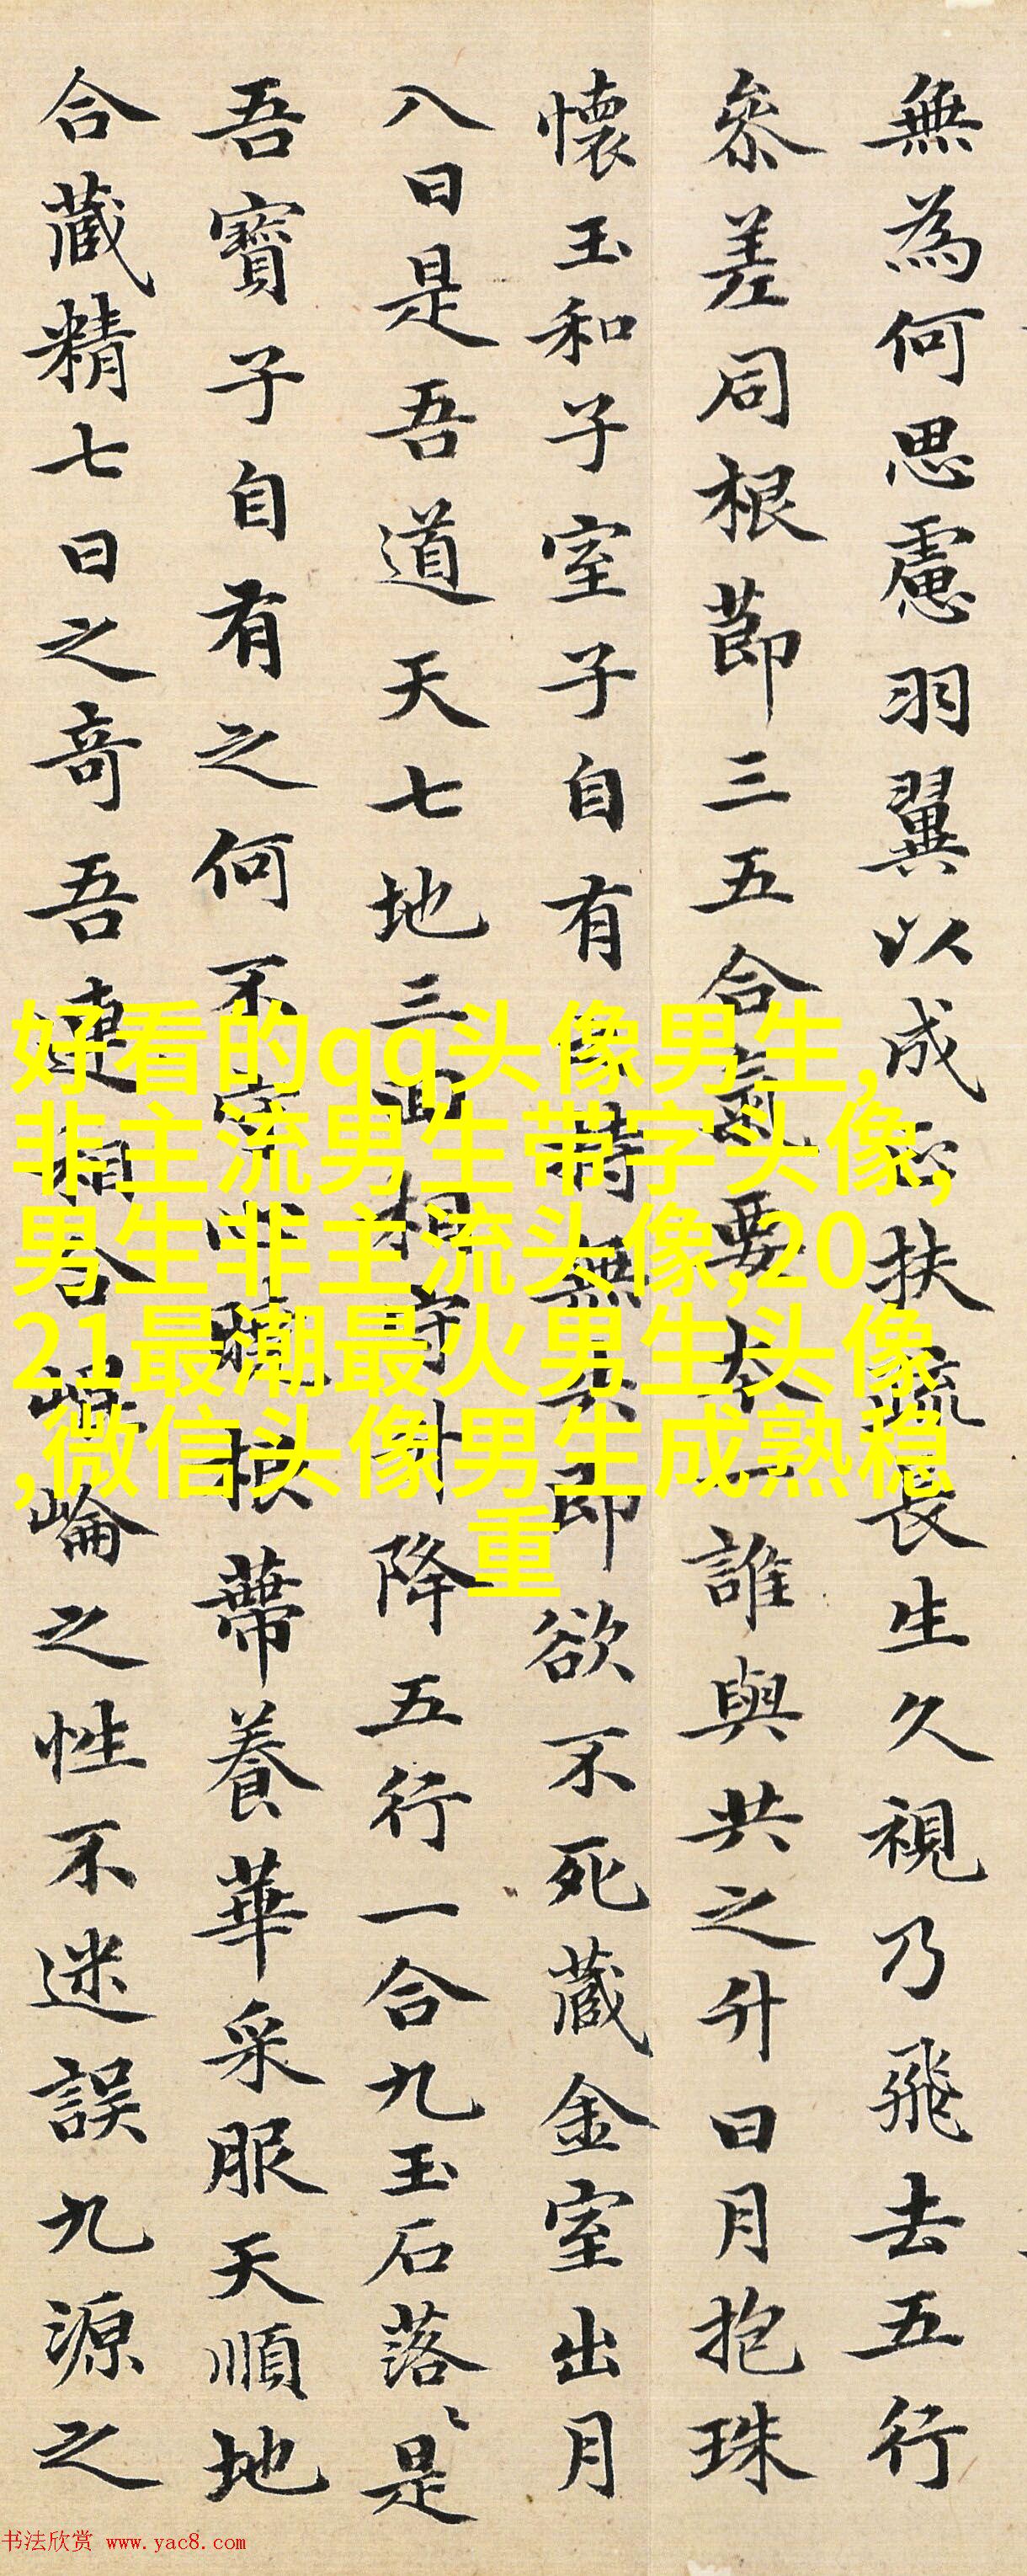 無為何思慮羽翼以成正扶疏長生久視乃飛去五行
參差同根莭三五合氣要本一誰與共之升日月抱珠
懷玉和子室子自有持無失即欲不死藏金室出月
八日是吾道天七地三回相守升降五行一合九玉石落〻是
吾寶子自有之何不守心曉根蔕養華采服天順地
合藏精七日之奇吾連相合崐崘之性不迷誤九源之
好看的qq头像男生,
非主流男生带字头像,
男生非主流头像,20
21最潮最火男生头像
,微信头像男生成熟稳
重
书法欣赏 www.yac8.com